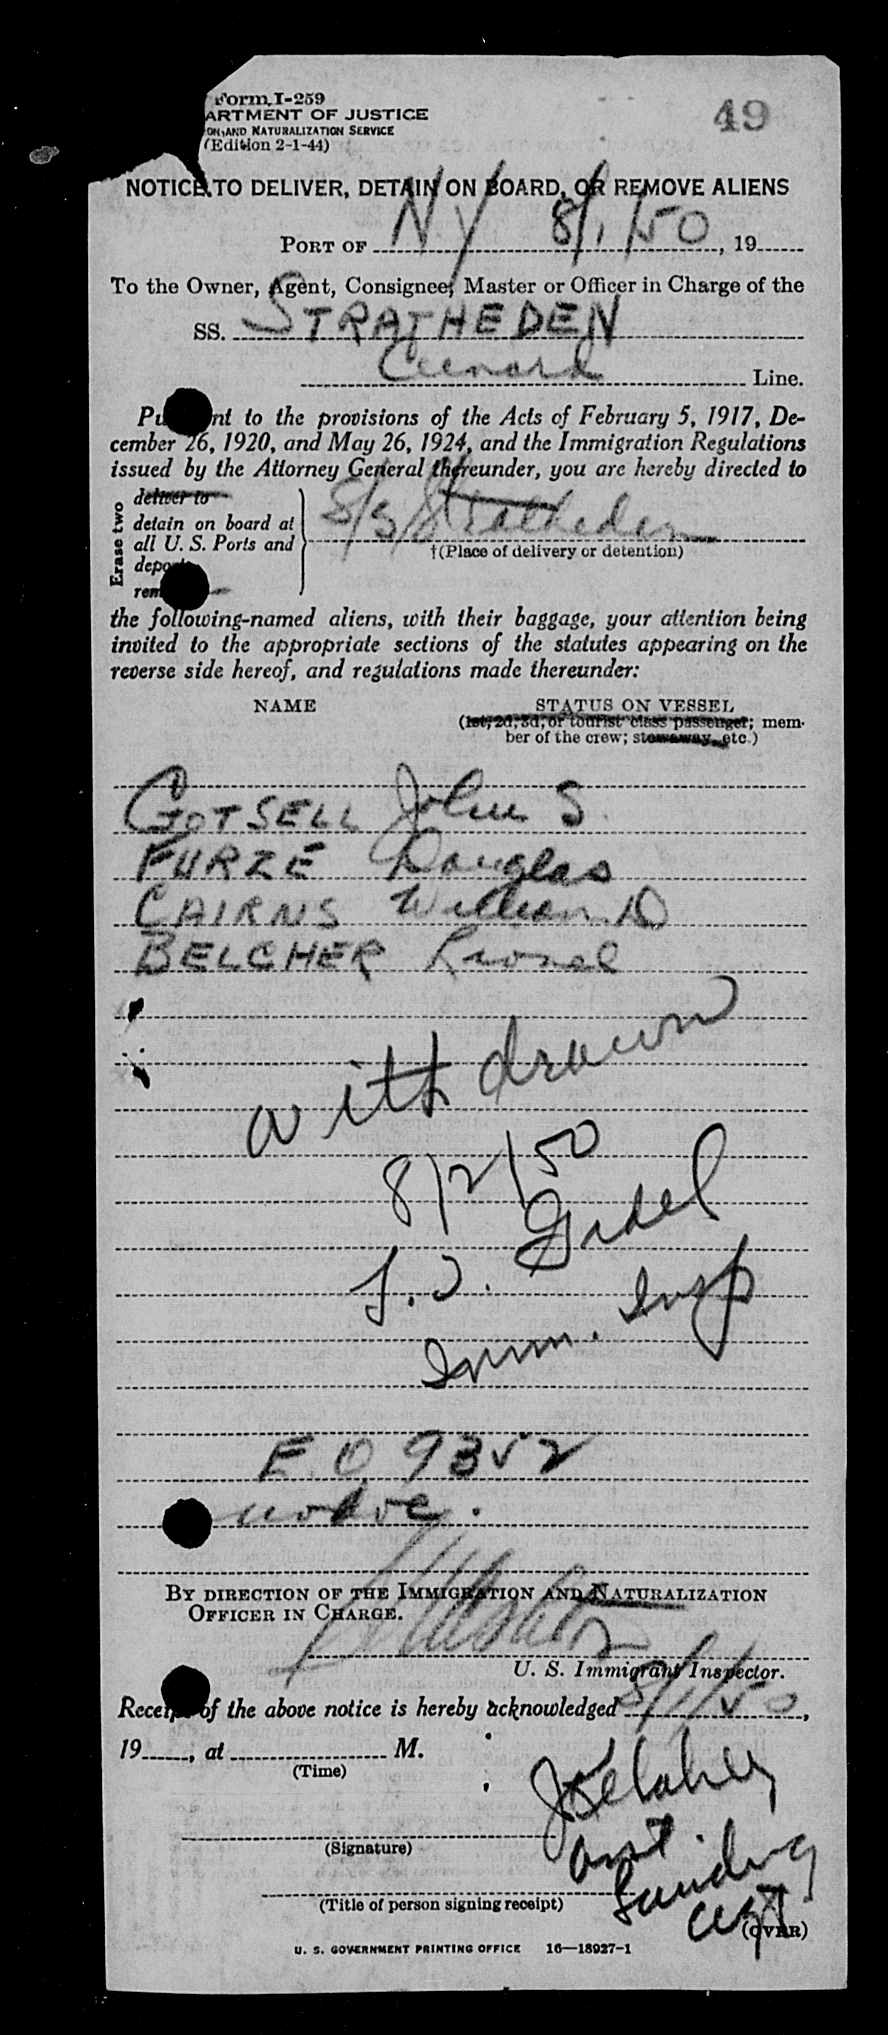 Form I-259
ARTMENT OF JUSTICE
ON AND NATURALIZATION SERVICE
(Edition 2-1-44)
49
NOTICE TO DELIVER, DETAIN ON BOARD, OR REMOVE ALIENS
PORT OF NY 8/1/50, 19
To the Owner, Agent, Consignee, Master or Officer in Charge of the
SS. STRATHEDEN
Cunard Line.
Pu nt to the provisions of the Acts of February 5, 1917, De-
cember 26, 1920, and May 26, 1924, and the Immigration Regulations
issued by the Attorney General thereunder, you are hereby directed to
Erase two
deliver to
detain on board at
all U. S. Ports and
depor
rem
S/S Stratheden
†(Place of delivery or detention)
the following-named aliens, with their baggage, your attention being
invited to the appropriate sections of the statutes appearing on the
reverse side hereof, and regulations made thereunder:
NAME STATUS ON VESSEL
(1st, 2d, 3d, or tourist class passenger; mem-
ber of the crew; stowaway, etc.)
GOTSELL John S
FURZE Douglas
CAIRNS William D
BELCHER Lionel
withdrawn
8/2/50
Imm. Insp
E.O 9352
BY DIRECTION OF THE IMMIGRATION AND NATURALIZATION
OFFICER IN CHARGE.
U. S. Immigrant Inspector.
Receipt of the above notice is hereby acknowledged 8/1/50,
19, at M.
(Time)
(Signature)
(Title of person signing receipt)
(OVER)
U. S. GOVERNMENT PRINTING OFFICE 16—18927-1